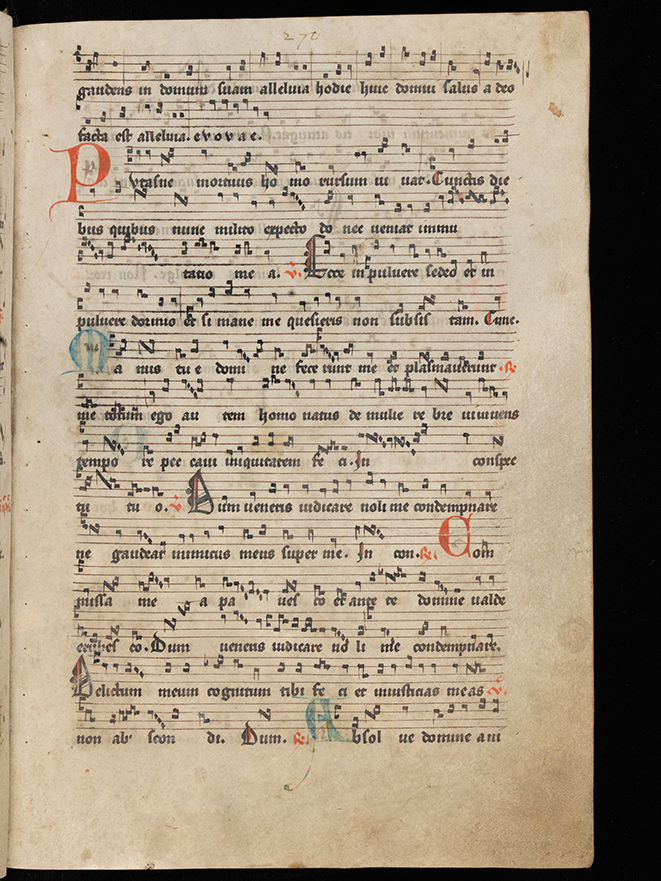 272
gaudens in domum suam alleluia hodie huic domui salus a deo
facta est alleluia. e v o v a e.
P vtasne mortuus ho mo rursum ui uat. Cunctis die
bus quibus nunc milito expecto do nec ueniat inmu
tatio me a. v. Ecce in puluere sedeo et in
puluere dormio et si mane me quesieris non subsis tam. Cunc.
M a nus tu e domi ne fece runt me et plasmauerunt R
me totum ego au tem homo natus de mulie re bre ui uiuens
tempo re pec caui iniquitatem fe ci. In conspec
tu tu o. v. Dum ueneris iudicare noli me condempnare
ne gaudeat inimicus meus super me. In con. R. Com
missa me a pa ues co et ante te domine valde
erubes co. Dum ueneris iudicare no li me condempnare.
Delictum meum cognitum tibi fe ci et iniusticias meas v.
non abs con di. Dum. R. A bsol ue domine ani